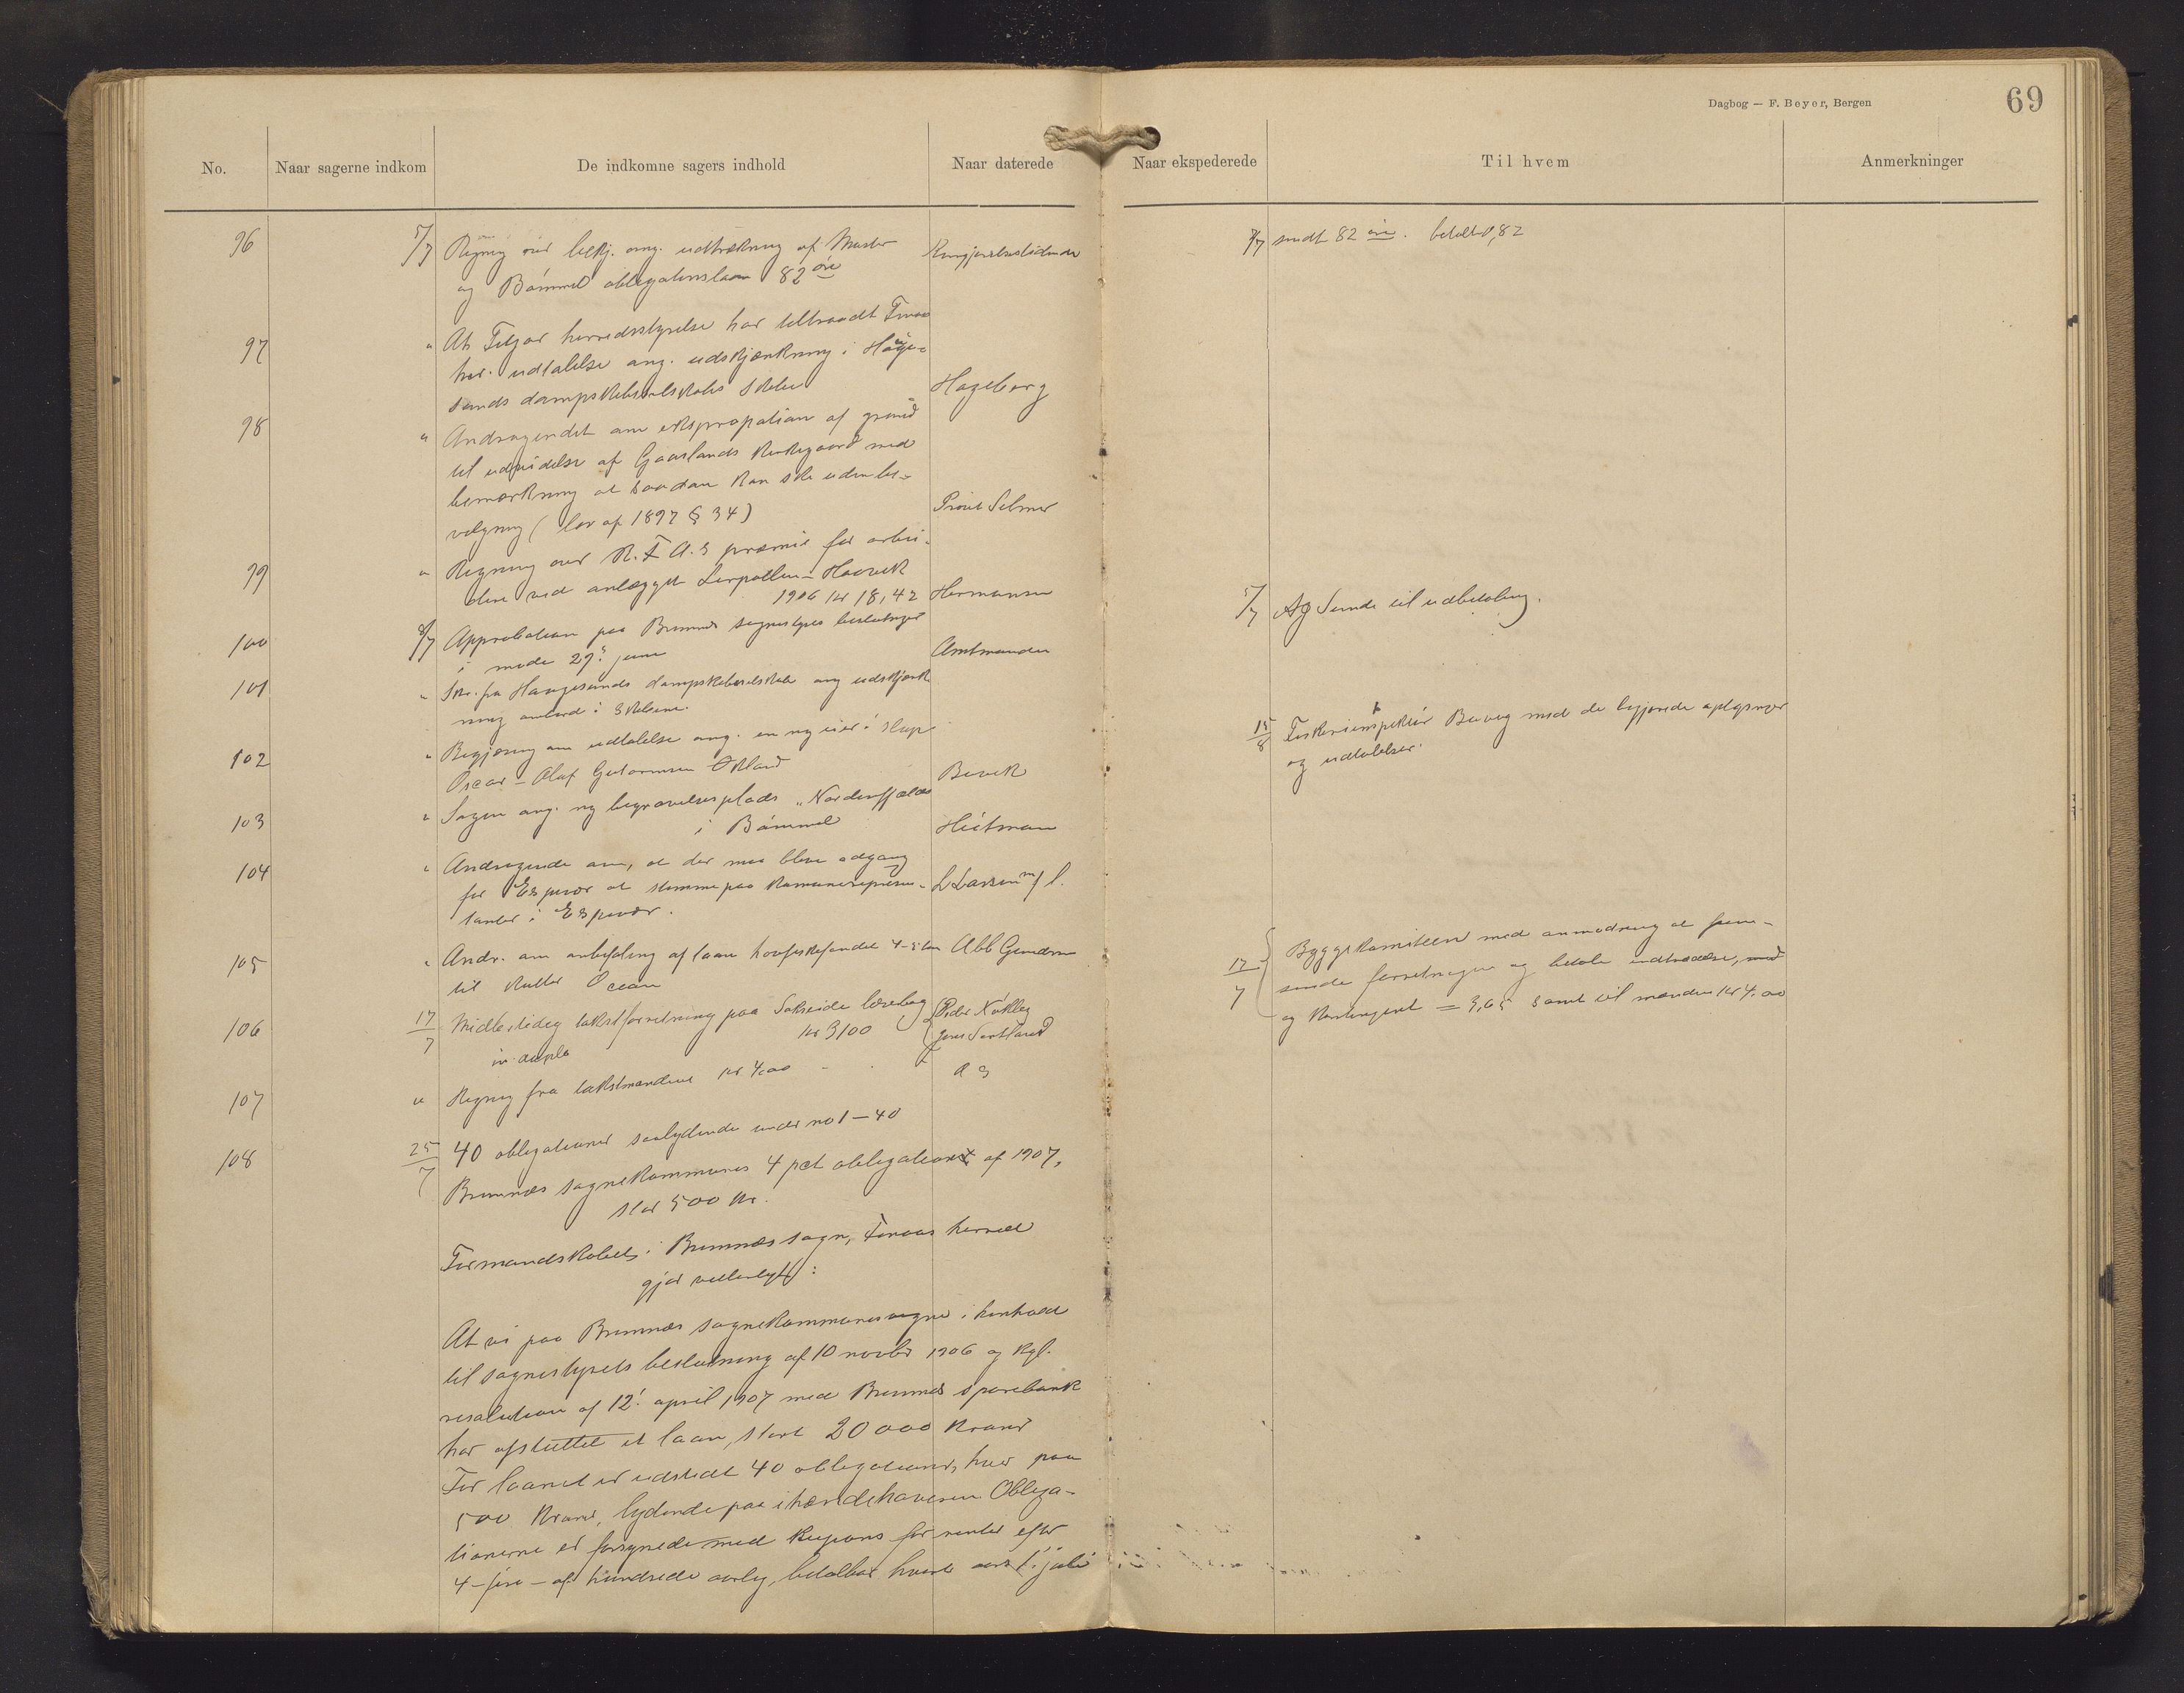 Dagbog — F. Beyer, Bergen
69
No.
Naar sagerne indkom
De indkomne sagers indhold
Naar daterede
Naar ekspederede
Til hvem
Anmerkninger
96 5/7 Regning over bekj. ang. udtrækning af
og Bømmel obligationslaan 82 øre
7/7 sendt 82 øre. betalt 0,82
97 " At Fitjar herredsstyrelse har tiltraadt Finaas
her. udtalelse ang. udskjænkning i Hauge-
sunds dampskibsselskabs skibe Hageberg
98 " Andragendet om ekspropriation af grund
til udvidelse af Gaaslands kirkegaard med
bemærkning at saadan kan ske uden be-
vilgning (lov af 1897 § 34) Provst Selmer
99 " Regning over R.F.A.s præmie for arbei-
dere ved anlægget Lerpollen - Haavik
1906 kr 18,42 Hermansen
5/7 Sunde til udbetaling.
100 8/7 Approbation paa Bremnes sognestyres beslutninger
i møde 29. juni Amtmanden
101 " Skr. fra Haugesunds dampskibsselskab ang udskjænk
ning ombord i skibene.
102 " Begjæring om udtalelse ang. en ny eier i
Oscar - Olaf Guttormsen Økland
15/8 Fiskeriinspektør med de begjærede oplysninger
og udtalelser.
103 " Sagen ang. ny begravelsesplads "Nordenfjelds
i Bømmel Heitman
104 " Andragende om, at der maa blive adgang
for Espevær at stemme paa kommunerepresen-
tanter i Espevær. L Larsen m/ fl.
105 " Andr. om anbefaling af laan
til kutter Ocean Abb Gundersen
106 17/7 Midlertidig takstforretning paa
in duplo kr 3100
17/7 Byggekomiteen med anmodning at frem-
sende forretningen og betale indtrædelse,
og kontingent = 3,65 samt til mændene kr 4,00
107 " Regning fra takstmændene kr 4,00
108 25/7 40 obligationer saalydende under no 1 — 40
Bremnes sognekommunes 4 pct obligation af 1907,
stor 500 kr.
Formandskabet i Bremnes sogn, Finaas herred
gjør vitterligt:
At vi paa Bremnes sognekommunes vegne i henhold
til sognestyrets beslutning af 10 novbr 1906 og kgl.
resolution af 12. april 1907 med Bremnes sparebank
har afsluttet et laan, stort 20 000 kroner
For laanet er udstedt 40 obligationer, hver paa
500 kroner, lydende paa ihændehaveren Obliga-
tionerne er forsynede med kupons for renter efter
4 - fire - af hundrede aarlig, betalbar hvert aars 1. juli